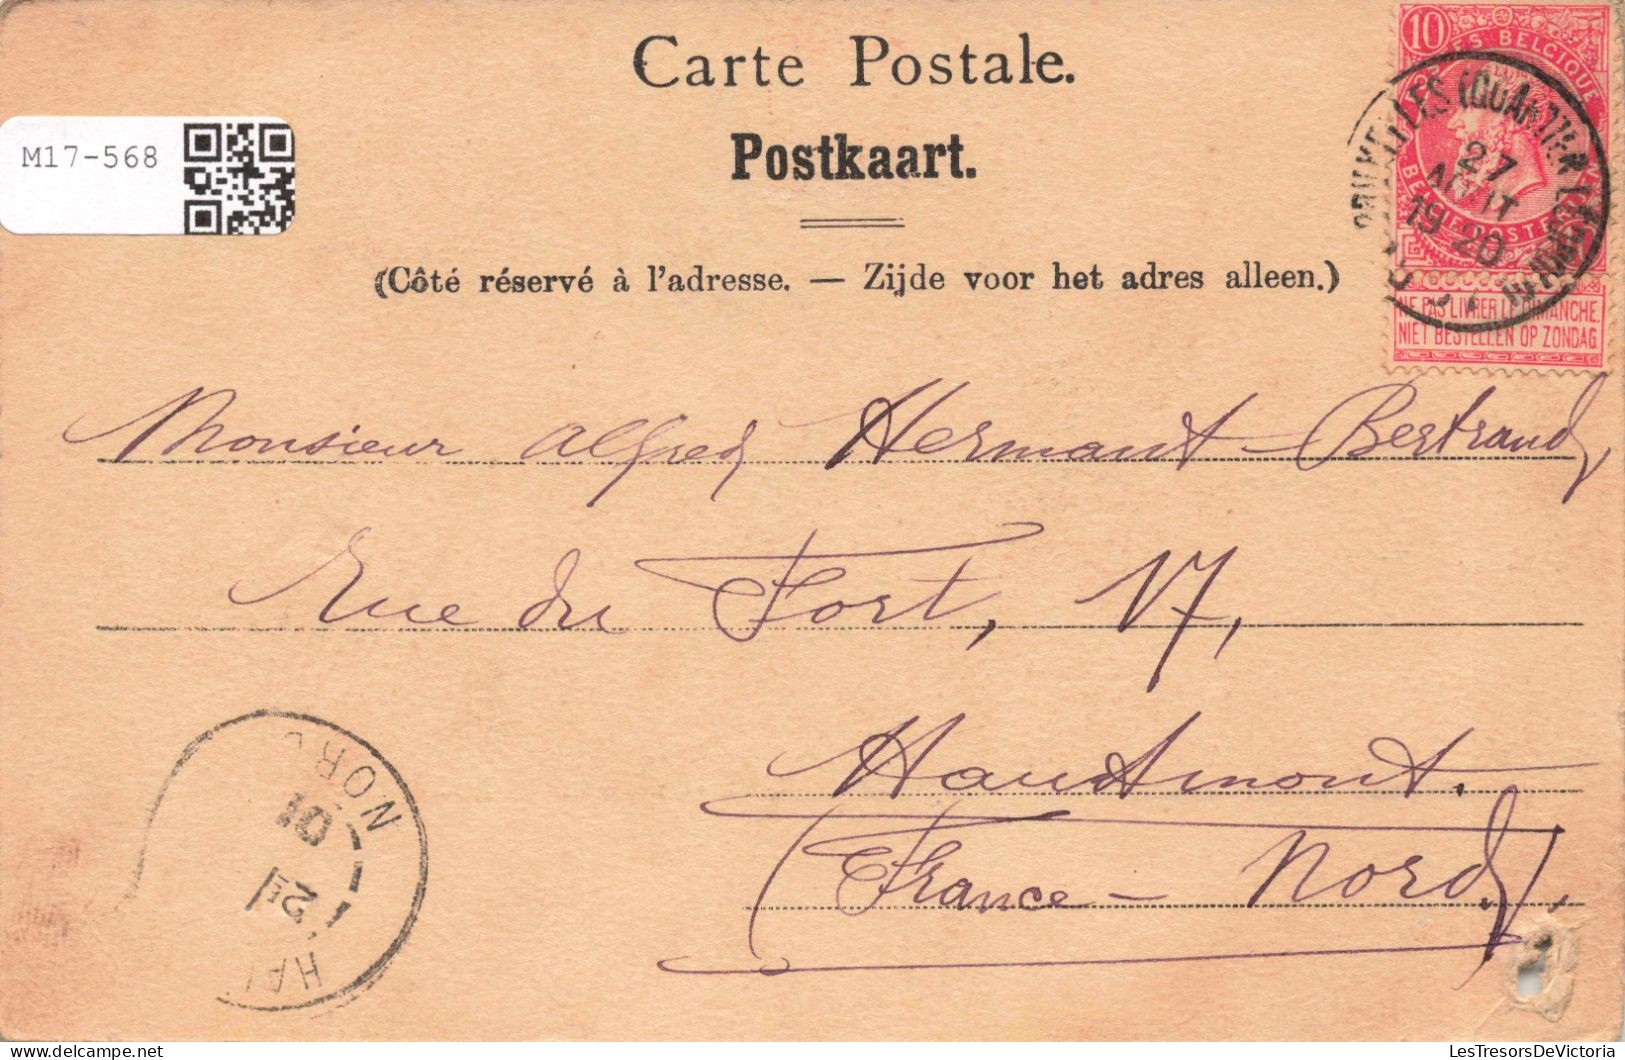 Carte Postale.
Postkaart.
(Côté réservé à l'adresse. — Zijde voor het adres alleen.)
M17-568
10
POSTES. BELGIQUE
BELGIE. POSTERIJEN
NE PAS LIVRER LE DIMANCHE.
NIET BESTELLEN OP ZONDAG.
BRUXELLES (QUARTIER LEOPOLD)
27
AOUT
19-20
Monsieur Alfred Hermant-Bertrand,
Rue du Fort, 17,
Hautmont.
(France-Nord),
HAU
NORD
01
LesTresorsDeVictoria